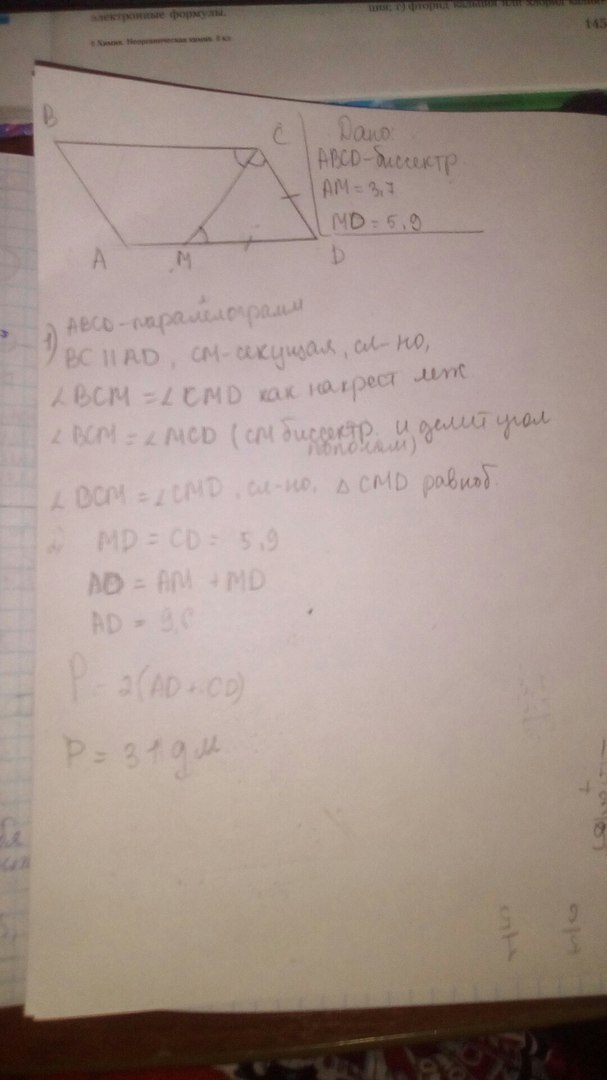 электронные формулы.
ция, г) фторид кальция или хлорид
145
6 Химия. Неорганическая химия. 8 кл.
B
C
A
M
D
Дано:
ABCD-биссектр
AM = 3,7
MD = 5,9
1) ABCD-паралелограмм
BC || AD, CM-секущая, сл-но,
∠BCM = ∠CMD как накрест леж
∠BCM = ∠MCD (CM биссектр. и делит угол
пополам)
∠BCM = ∠CMD, сл-но, △CMD равноб.
MD = CD = 5,9
AD = AM + MD
AD = 9,6
P = 2(AD + CD)
P = 31 дм